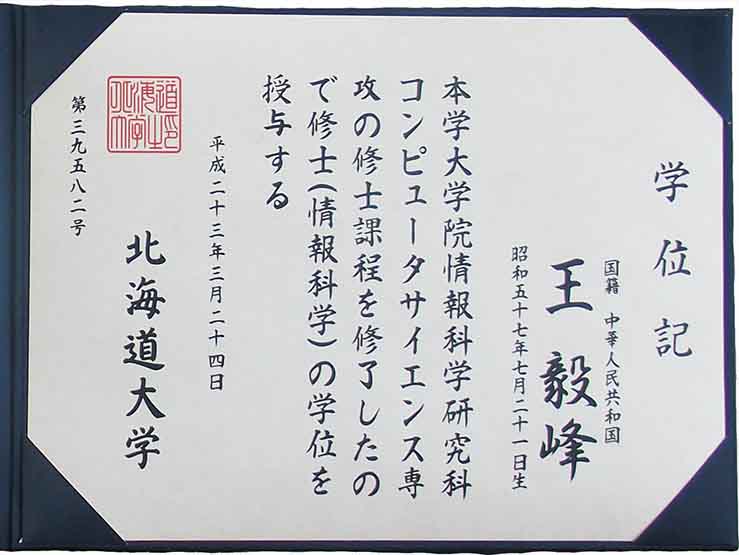 学位記
国籍 中華人民共和国
王毅峰
昭和五十七年七月二十一日生
本学大学院情報科学研究科
コンピュータサイエンス専
攻の修士課程を修了したの
で修士(情報科学)の学位を
授与する
平成二十三年三月二十四日
北海道大学
第三九五八二号